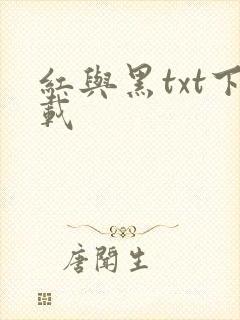 紅與黑txt下
載
唐聞生